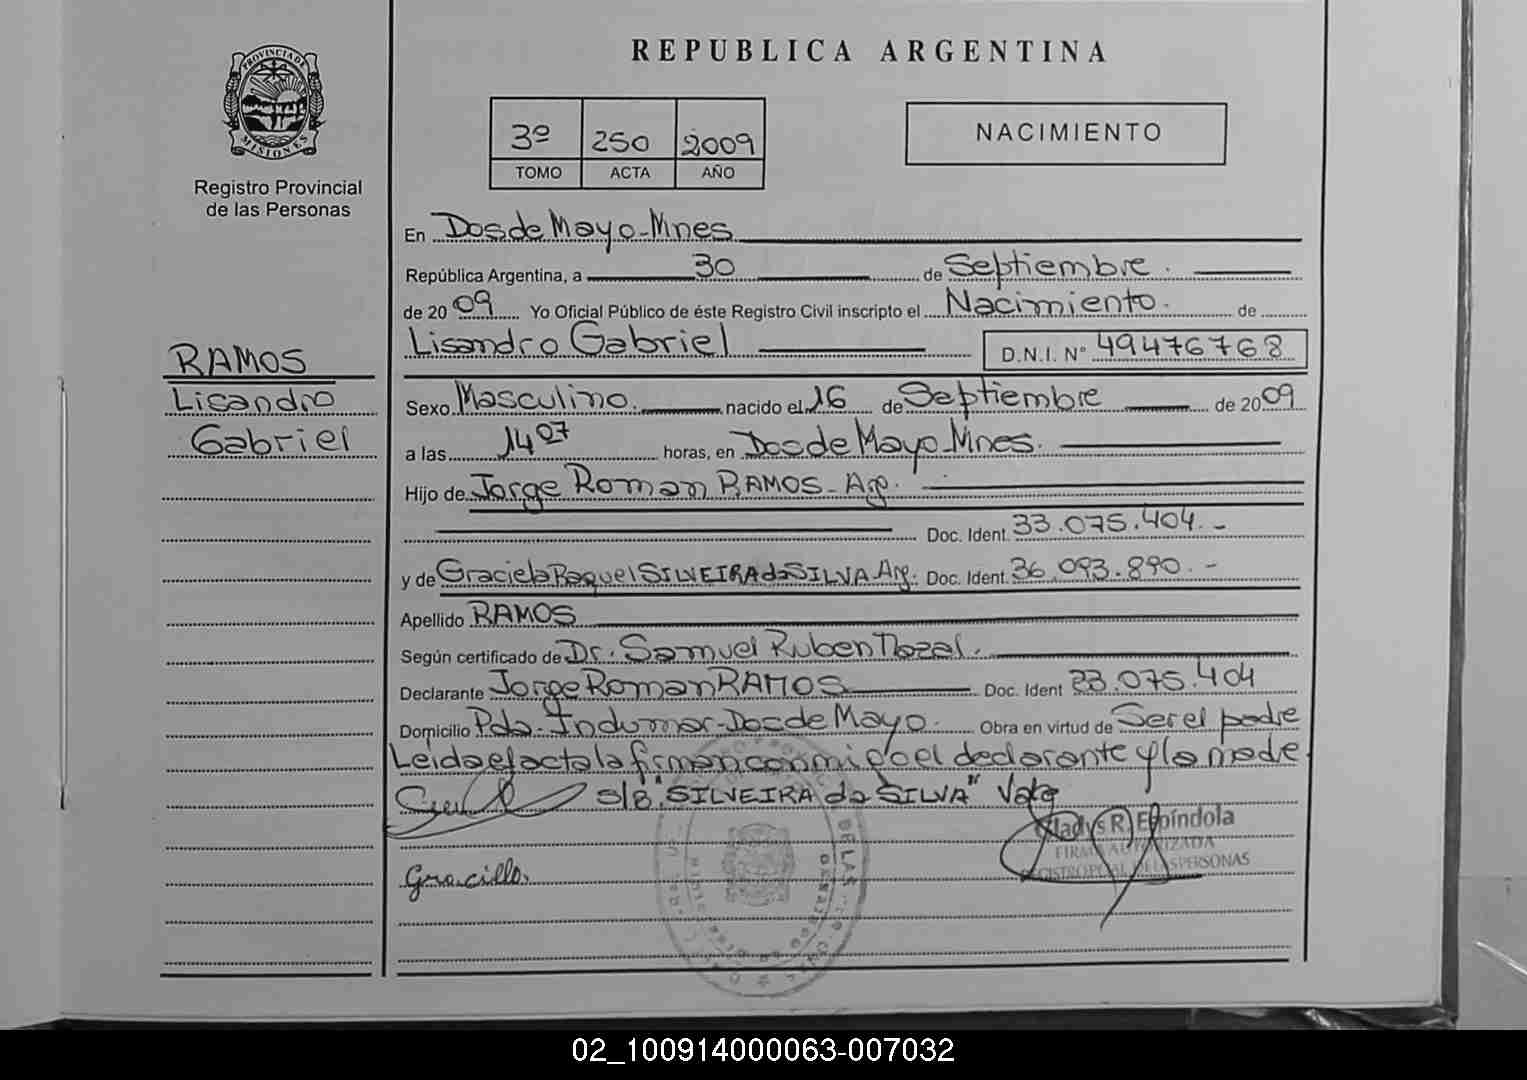 REPUBLICA ARGENTINA
PROVINCIA DE
MISIONES
Registro Provincial
de las Personas
3º 250 2009
TOMO ACTA AÑO
NACIMIENTO
En Dos de Mayo-Mnes
República Argentina, a 30 de Septiembre.
de 2009 Yo Oficial Público de éste Registro Civil inscripto el Nacimiento. de
Lisandro Gabriel D.N.I. Nº 49476768
RAMOS
Lisandro
Gabriel
Sexo Masculino. nacido el 16 de Septiembre de 2009
a las 14 07 horas, en Dos de Mayo-Mnes.
Hijo de Jorge Roman RAMOS - Arg.
Doc. Ident. 33.075.404.-
y de Graciela Raquel SILVEIRA da SILVA Arg. Doc. Ident. 36.093.890.-
Apellido RAMOS
Según certificado de Dr. Samuel Ruben
Declarante Jorge Roman RAMOS Doc. Ident 33.075.404
Domicilio Pda. Indumar-Dos de Mayo. Obra en virtud de Ser el padre
Leida el acta la firman conmigo el declarante y la madre
S/B "SILVEIRA da SILVA" Vale
Gladys R. Espíndola
FIRMA AUTORIZADA
REGISTRO PCIAL DE LAS PERSONAS
02_100914000063-007032